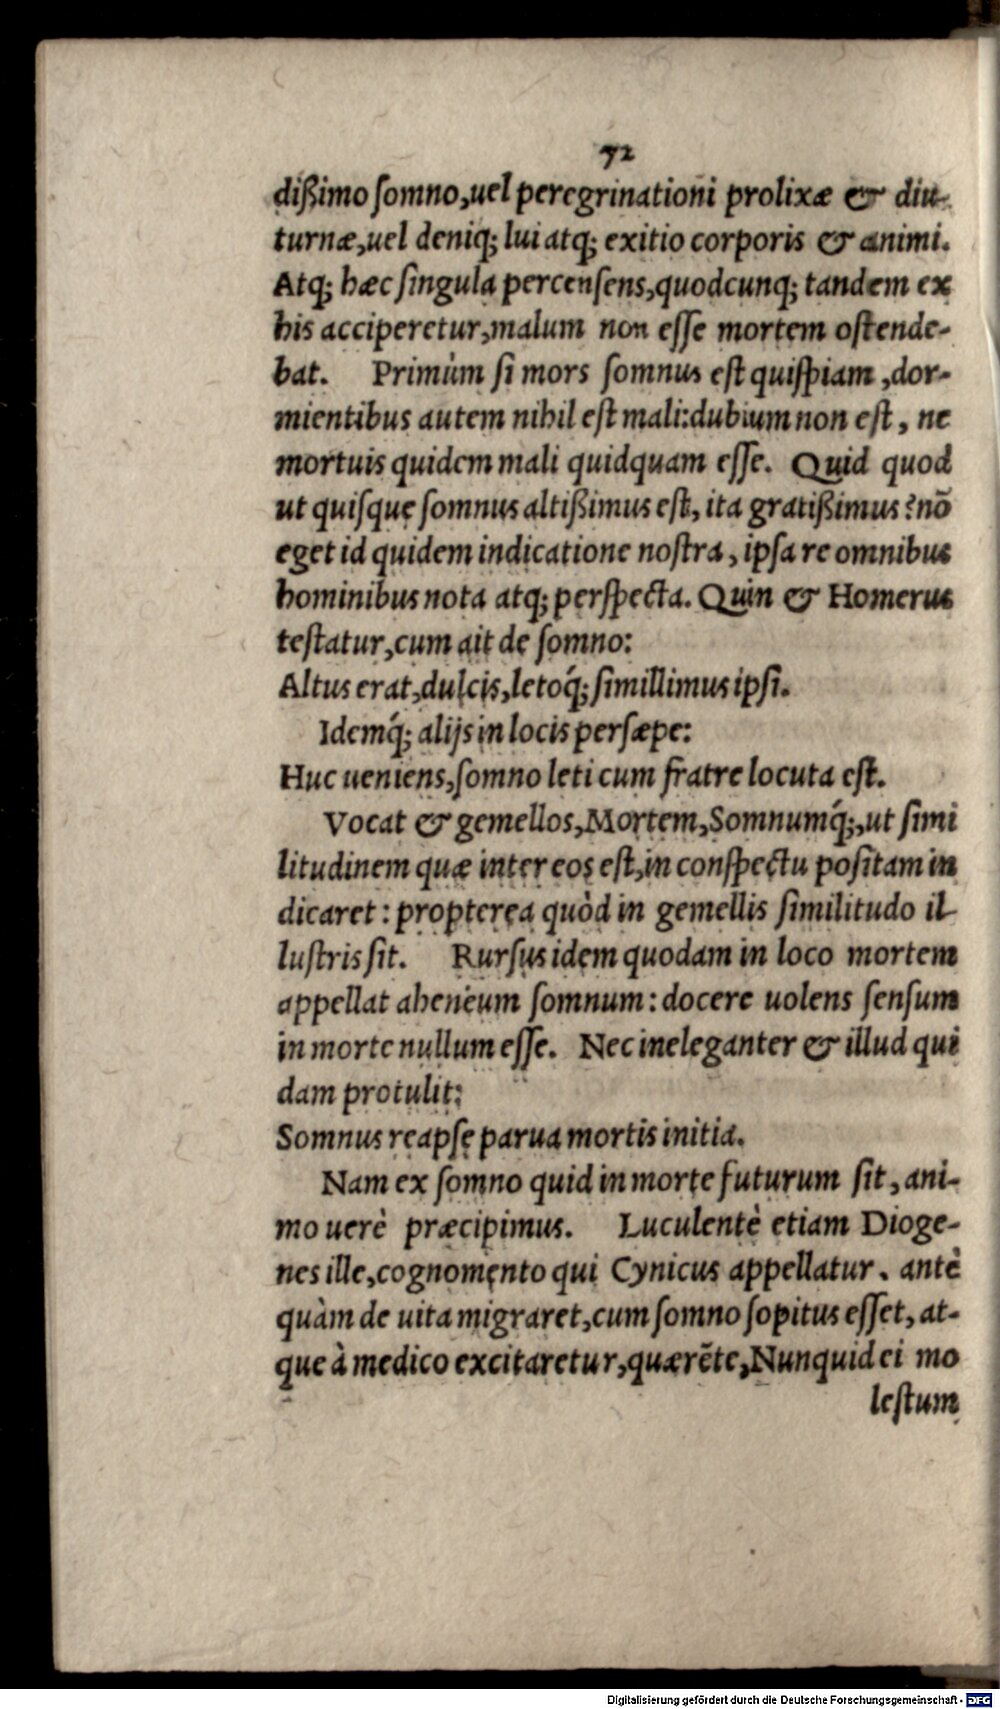 72
dißimo ſomno,uel peregrinationi prolixæ & diu-
turnæ,uel deniq; lui atq; exitio corporis & animi.
Atq; hæc ſingula percenſens,quodcunq; tandem ex
his acciperetur,malum non eſſe mortem oſtende-
bat. Primùm ſi mors ſomnus eſt quiſpiam ,dor-
mientibus autem nihil eſt mali:dubium non eſt, ne
mortuis quidem mali quidquam eſſe. Quid quod
ut quiſque ſomnus altißimus eſt, ita gratißimus?nō
eget id quidem indicatione noſtra, ipſa re omnibus
hominibus nota atq; perſpecta. Quin & Homerus
teſtatur,cum ait de ſomno:
Altus erat,dulcis,letoq́; ſimillimus ipſi.
Idemq́; alijs in locis perſæpe:
Huc ueniens,ſomno leti cum fratre locuta eſt.
Vocat & gemellos,Mortem,Somnumq́;,ut ſimi
litudinem quæ inter eos eſt,in conſpectu poſitam in
dicaret: propterea quòd in gemellis ſimilitudo il-
luſtris ſit. Rurſus idem quodam in loco mortem
appellat aheneum ſomnum: docere uolens ſenſum
in morte nullum eſſe. Nec ineleganter & illud qui
dam protulit:
Somnus reapſe parua mortis initia.
Nam ex ſomno quid in morte futurum ſit, ani-
mo uerè præcipimus. Luculentè etiam Dioge-
nes ille,cognomento qui Cynicus appellatur. antè
quàm de uita migraret,cum ſomno ſopitus eſſet, at-
que à medico excitaretur,quærēte,Nunquid ei mo
leſtum
Digitalisierung gefördert durch die Deutsche Forschungsgemeinschaft - DFG